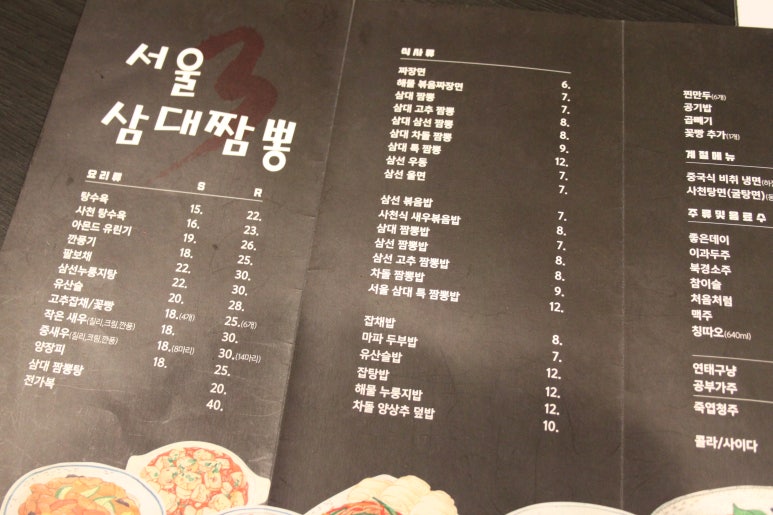 서울 3
삼대짬뽕
요리류 S R
탕수육 15. 22.
사천 탕수육 16. 23.
아몬드 유린기 19. 26.
깐풍기 18. 25.
팔보채 22. 30.
삼선누룽지탕 22. 30.
유산슬 20. 28.
고추잡채/꽃빵 18.(4개) 25.(6개)
작은 새우(칠리,크림,깐풍) 18. 30.
중새우(칠리,크림,깐풍) 18.(8마리) 30.(14마리)
양장피 18. 25.
삼대 짬뽕탕 20.
전가복 40.
식사류
짜장면 6.
해물 볶음짜장면 7.
삼대 짬뽕 7.
삼대 고추 짬뽕 8.
삼대 삼선 짬뽕 8.
삼대 차돌 짬뽕 9.
삼대 특 짬뽕 12.
삼선 우동 7.
삼선 울면 7.
삼선 볶음밥 7.
사천식 새우볶음밥 8.
삼대 짬뽕밥 7.
삼선 짬뽕밥 8.
삼선 고추 짬뽕밥 8.
차돌 짬뽕밥 9.
서울 삼대 특 짬뽕밥 12.
잡채밥 8.
마파 두부밥 7.
유산슬밥 12.
잡탕밥 12.
해물 누룽지밥 12.
차돌 양상추 덮밥 10.
찐만두(6개)
공기밥
곱빼기
꽃빵 추가(1개)
계절메뉴
중국식 비취 냉면
사천탕면(굴탕면)
주류 및 음료수
좋은데이
이과두주
북경소주
참이슬
처음처럼
맥주
칭따오(640ml)
연태구냥
공부가주
죽엽청주
콜라/사이다